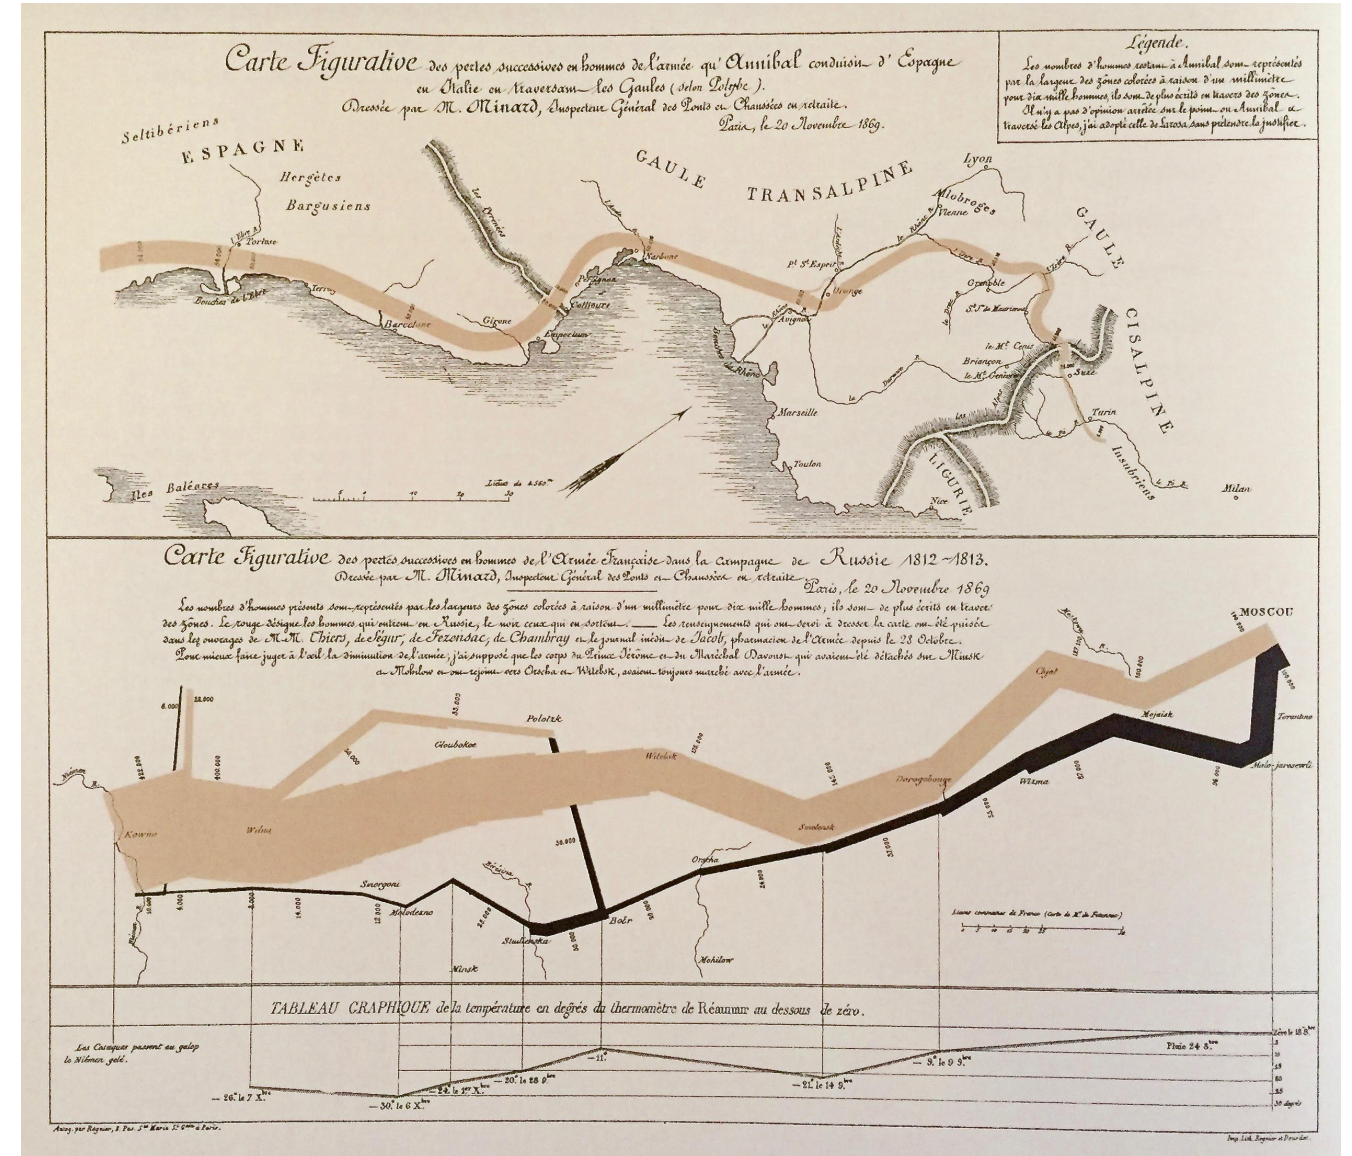 Carte Figurative des pertes successives en hommes de l'armée qu'Annibal conduisit d'Espagne
en Italie en traversant les Gaules (selon Polybe).
Dressée par M. Minard, Inspecteur Général des Ponts et Chaussées en retraite.
Paris, le 20 Novembre 1869.
Légende.
Les nombres d'hommes restant à Annibal sont représentés
par la largeur des zônes colorées à raison d'un millimètre
pour dix mille hommes, ils sont de plus écrits en travers des zônes.
Il n'y a pas d'opinion arrêtée sur le point où Annibal a
traversé les Alpes, j'ai adopté celle de Larosa, sans prétendre la justifier.
Seltibériens
ESPAGNE
Hergètes
Bargusiens
l'Ebre R.
Tortose
Bouches de l'Ebre
Barcelone
Girone
Emporium
Les Pyrénées
Collioure
Perpignan
Narbonne
l'Aude
GAULE TRANSALPINE
Lyon
Allobroges
Vienne
le Rhône R.
l'Ardèche R.
Pt. St. Esprit
Orange
Avignon
l'Isère R.
Grenoble
le Drac R.
le Mt. Cenis
Briançon
le Mt. Genèvre
Suze
Turin
les Alpes
la Durance R.
Bouches du Rhône
Marseille
Toulon
Nice
LIGURIE
GAULE CISALPINE
Insubriens
le Pô R.
Milan
Iles Baléares
5 10 20 30
Carte Figurative des pertes successives en hommes de l'Armée Française dans la campagne de Russie 1812-1813.
Dressée par M. Minard, Inspecteur Général des Ponts et Chaussées en retraite
Paris, le 20 Novembre 1869
Les nombres d'hommes présents sont représentés par les largeurs des zônes colorées à raison d'un millimètre pour dix mille hommes; ils sont de plus écrits en travers
des zônes. Le rouge désigne les hommes qui entrent en Russie, le noir ceux qui en sortent. — Les renseignements qui ont servi à dresser la carte ont été puisés
dans les ouvrages de M.M. Thiers, de Ségur, de Fezensac, de Chambray et le journal inédit de Jacob, pharmacien de l'Armée depuis le 28 Octobre.
Pour mieux faire juger à l'œil la diminution de l'armée, j'ai supposé que les corps du Prince Jérôme et du Maréchal Davoust qui avaient été détachés sur Minsk
et Mohilow et ont rejoint vers Orscha et Witebsk, avaient toujours marché avec l'armée.
MOSCOU
100.000
Chjat
Mojaisk
Tarantino
Malo-jarosewli
Wizma
Dorogobouge
Smolensk
Witebsk
Polotzk
Gloubokoe
Wilna
Kowno
Niémen R.
6.000
22.000
422.000
400.000
60.000
33.000
175.000
145.000
127.100
100.000
100.000
96.000
87.000
55.000
37.000
24.000
30.000
20.000
50.000
28.000
12.000
14.000
8.000
4.000
10.000
Smorgoni
Molodezno
Minsk
Studienska
Bérézina R.
Bobr
Orscha
Mohilow
Lieues communes de France (Carte de Mr. de Fezensac)
TABLEAU GRAPHIQUE de la température en degrés du thermomètre de Réaumur au dessous de zéro.
Les Cosaques passent au galop
le Niémen gelé.
— 26.° le 7 Xbre
— 30.° le 6 Xbre
— 24.° le 1er Xbre
— 20.° le 28 9bre
— 11.°
— 21.° le 14 9bre
— 9.° le 9 9bre
Pluie 24 8bre
Zéro le 18 8bre
5
10
15
20
25
30 degrés
Autog. par Regnier, 8. Pas. Ste. Marie St. Gain à Paris.
Imp. Lith. Regnier et Dourdet.